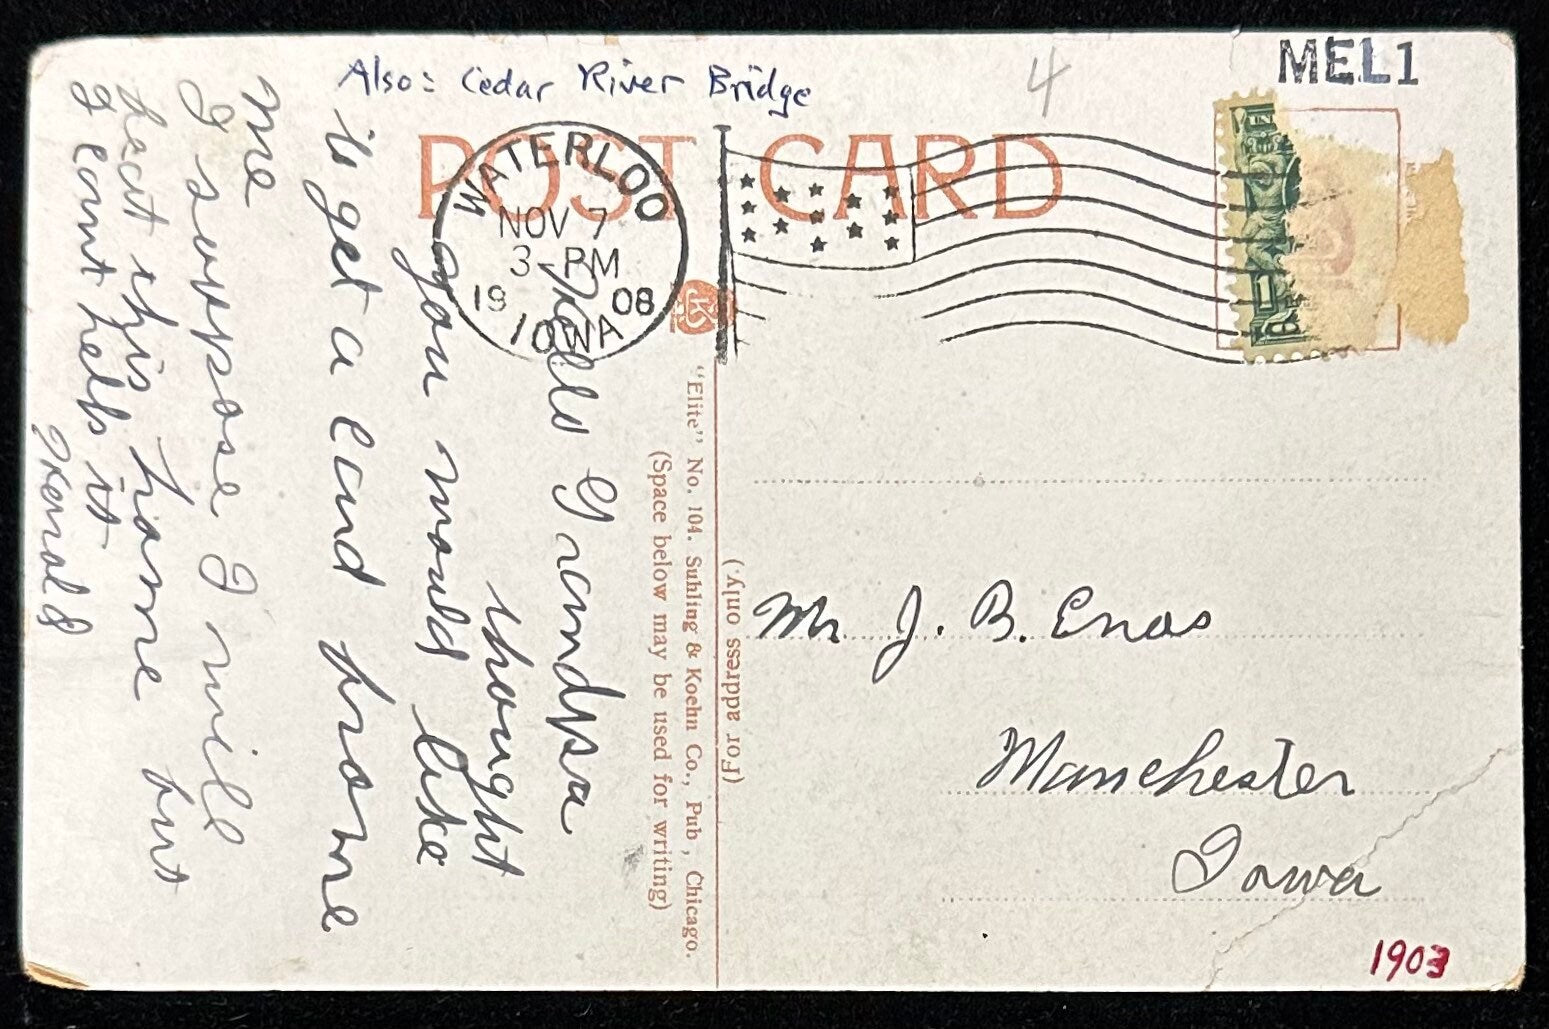 Also: Cedar River Bridge
4
MEL1
POST CARD
WATERLOO
NOV 7
3-PM
1908
IOWA
Hello Grandpa
thought
you would like
to get a card from
me
I suppose I will
beat this home but
I cant help it
Gerald
"Elite" No. 104. Suhling & Koehn Co., Pub, Chicago.
(Space below may be used for writing)
(For address only.)
Mr J. B. Enos
Manchester
Iowa
1903